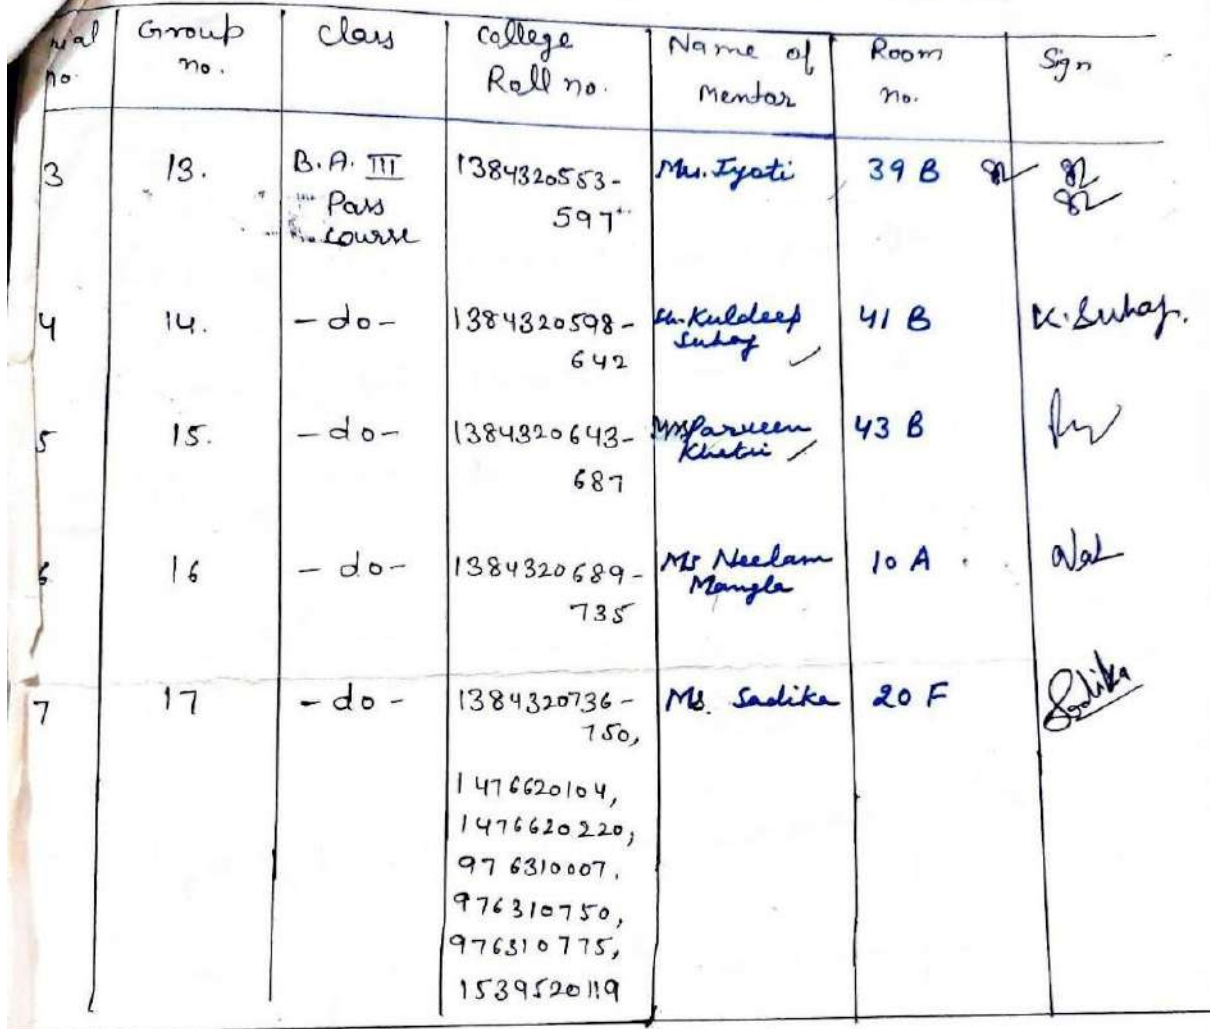 Group no. Class College Roll no. Name of Mentor Room no. Sign
no.
3 13. B.A. III Pass course 1384320553-597 Mrs. Jyoti 39 B
4 14. -do- 1384320598-642 Sh. Kuldeep Suhag 41 B K. Suhag.
5 15. -do- 1384320643-687 Parveen Khetri 43 B
6 16 -do- 1384320689-735 Ms Neelam Mangla 10 A
7 17 -do- 1384320736-750, Ms. Sadika 20 F Sadika
1476620104,
1476620220,
976310007,
976310750,
976310775,
1539520119